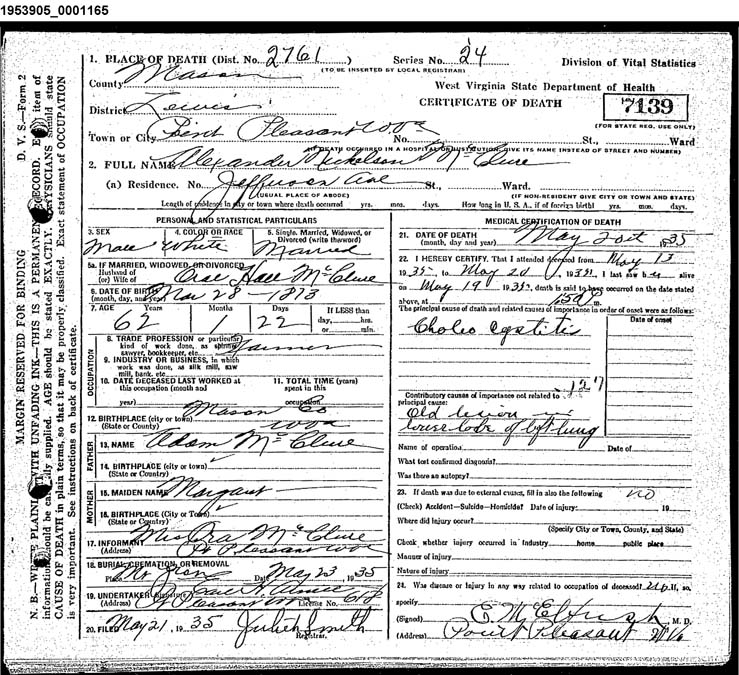 1953905_0001165
MARGIN RESERVED FOR BINDING
D. V. S.—Form 2
N. B.—WRITE PLAINLY WITH UNFADING INK—THIS IS A PERMANENT RECORD. item of
information should be carefully supplied. AGE should be stated EXACTLY. PHYSICIANS should state
CAUSE OF DEATH in plain terms, so that it may be properly classified. Exact statement of OCCUPATION
is very important. See instructions on back of certificate.
1. PLACE OF DEATH (Dist. No. 2761) Series No. 24 Division of Vital Statistics
(TO BE INSERTED BY LOCAL REGISTRAR)
County Mason West Virginia State Department of Health
District Lewis CERTIFICATE OF DEATH 7139
(FOR STATE REG. USE ONLY)
Town or City Point Pleasant W Va No. St., Ward
(IF DEATH OCCURRED IN A HOSPITAL OR INSTITUTION, GIVE ITS NAME INSTEAD OF STREET AND NUMBER)
2. FULL NAME Alexander Nickelson McClure
(a) Residence. No. Jefferson Ave St., Ward.
(USUAL PLACE OF ABODE) (IF NON-RESIDENT GIVE CITY OR TOWN AND STATE)
Length of residence in city or town where death occurred yrs. mos. days. How long in U. S. A., if of foreign birth? yrs. mos. days.
PERSONAL AND STATISTICAL PARTICULARS
3. SEX 4. COLOR OR RACE 5. Single, Married, Widowed, or
Divorced (write the word)
Male White Married
5a. IF MARRIED, WIDOWED, OR DIVORCED
Husband of
(or) Wife of Orac Hall McClure
6. DATE OF BIRTH
(month, day, and year) Mar 28 - 1873
7. AGE Years Months Days If LESS than
62 1 22 day, hrs.
or min.
OCCUPATION
8. TRADE PROFESSION or particular
kind of work done, as spinner,
sawyer, bookkeeper, etc. Farmer
9. INDUSTRY OR BUSINESS, in which
work was done, as silk mill, saw
mill, bank, etc.
10. DATE DECEASED LAST WORKED at
this occupation (month and
year)
11. TOTAL TIME (years)
spent in this
occupation
12. BIRTHPLACE (city or town) Mason Co
(State or County) W Va
FATHER
13. NAME Adam McClure
14. BIRTHPLACE (city or town)
(State or Country)
MOTHER
15. MAIDEN NAME Margaret
16. BIRTHPLACE (City or Town)
(State or Country)
17. INFORMANT Mrs Ora McClure
(Address) Pt Pleasant W Va
18. BURIAL, CREMATION, OR REMOVAL
Place Mt Date May 23, 1935
19. UNDERTAKER
(Address) Pt Pleasant License No. 618
20. FILED May 21, 1935 Julich Smith
Registrar.
MEDICAL CERTIFICATION OF DEATH
21. DATE OF DEATH
(month, day and year) May 20th 1935
22. I HEREBY CERTIFY, That I attended deceased from May 13
1935, to May 20, 1935, I last saw h alive
on May 19 1935, death is said to have occurred on the date stated
above, at m.
The principal cause of death and related causes of importance in order of onset were as follows:
Date of onset
Choleo cystitis
127
Contributory causes of importance not related to
principal cause:
Old lesion in
lower lobe of left lung
Name of operation Date of
What test confirmed diagnosis?
Was there an autopsy?
23. If death was due to external causes, fill in also the following no
(Check) Accident—Suicide—Homicide? Date of injury: 19
Where did injury occur?
(Specify City or Town, County, and State)
Check whether injury occurred in Industry home public place
Manner of injury
Nature of injury
24. Was disease or injury in any way related to occupation of deceased? no If, so,
specify
(Signed) M. D.
(Address) Point Pleasant W Va